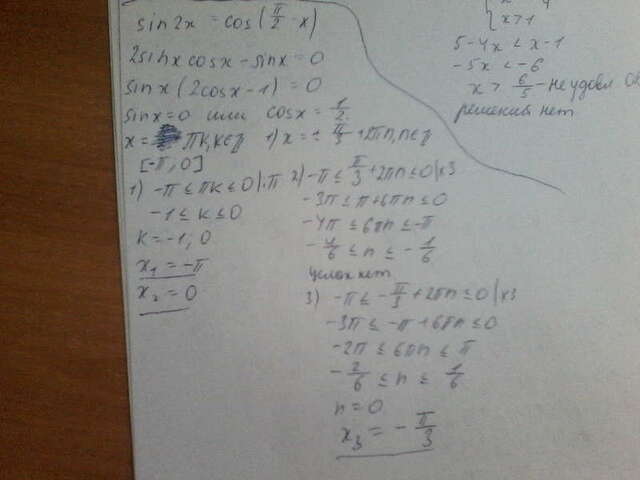 sin2x = cos(π/2 - x)
2sinxcosx - sinx = 0
sinx(2cosx - 1) = 0
sinx = 0 или cosx = 1/2
x = πk, k∈Z 1) x = ± π/3 + 2πn, n∈Z
[-π, 0]
1) -π ≤ πk ≤ 0 | :π
-1 ≤ k ≤ 0
k = -1; 0
x₁ = -π
x₂ = 0
2) -π ≤ π/3 + 2πn ≤ 0 | x3
-3π ≤ π + 6πn ≤ 0
-4π ≤ 6πn ≤ -π
-4/6 ≤ n ≤ -1/6
целых нет
3) -π ≤ -π/3 + 2πn ≤ 0 | x3
-3π ≤ -π + 6πn ≤ 0
-2π ≤ 6πn ≤ π
-2/6 ≤ n ≤ 1/6
n = 0
x₃ = -π/3
x > 1
5 - 4x < x - 1
-5x < -6
x > 6/5 - не удовл
решений нет